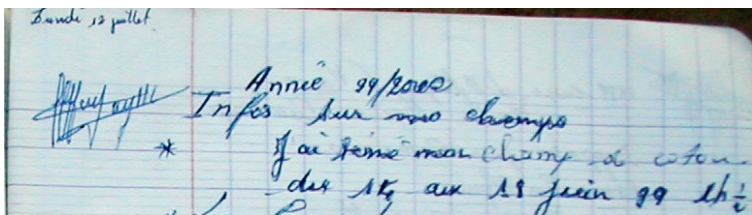 Lundi 12 juillet
Année 99/2000
Infos sur mes champs
* J'ai semé mon champ de coton
du au 18 juin 99